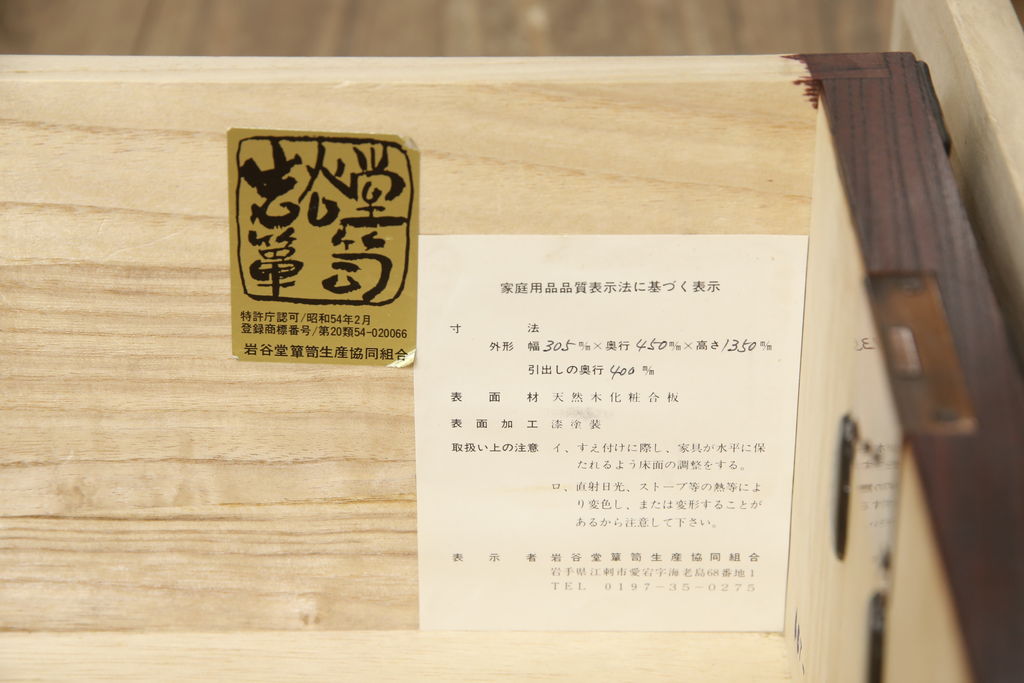 岩谷堂
簞笥
特許庁認可/昭和54年2月
登録商標番号/第20類54-020066
岩谷堂簞笥生産協同組合
家庭用品品質表示法に基づく表示
寸法
外形 幅305㎜×奥行450㎜×高さ1350㎜
引出しの奥行400㎜
表面材 天然木化粧合板
表面加工 漆塗装
取扱い上の注意 イ、すえ付けに際し、家具が水平に保
たれるよう床面の調整をする。
ロ、直射日光、ストーブ等の熱等によ
り変色し、または変形することが
あるから注意して下さい。
表示者 岩谷堂簞笥生産協同組合
岩手県江刺市愛宕字海老島68番地1
TEL 0197-35-0275